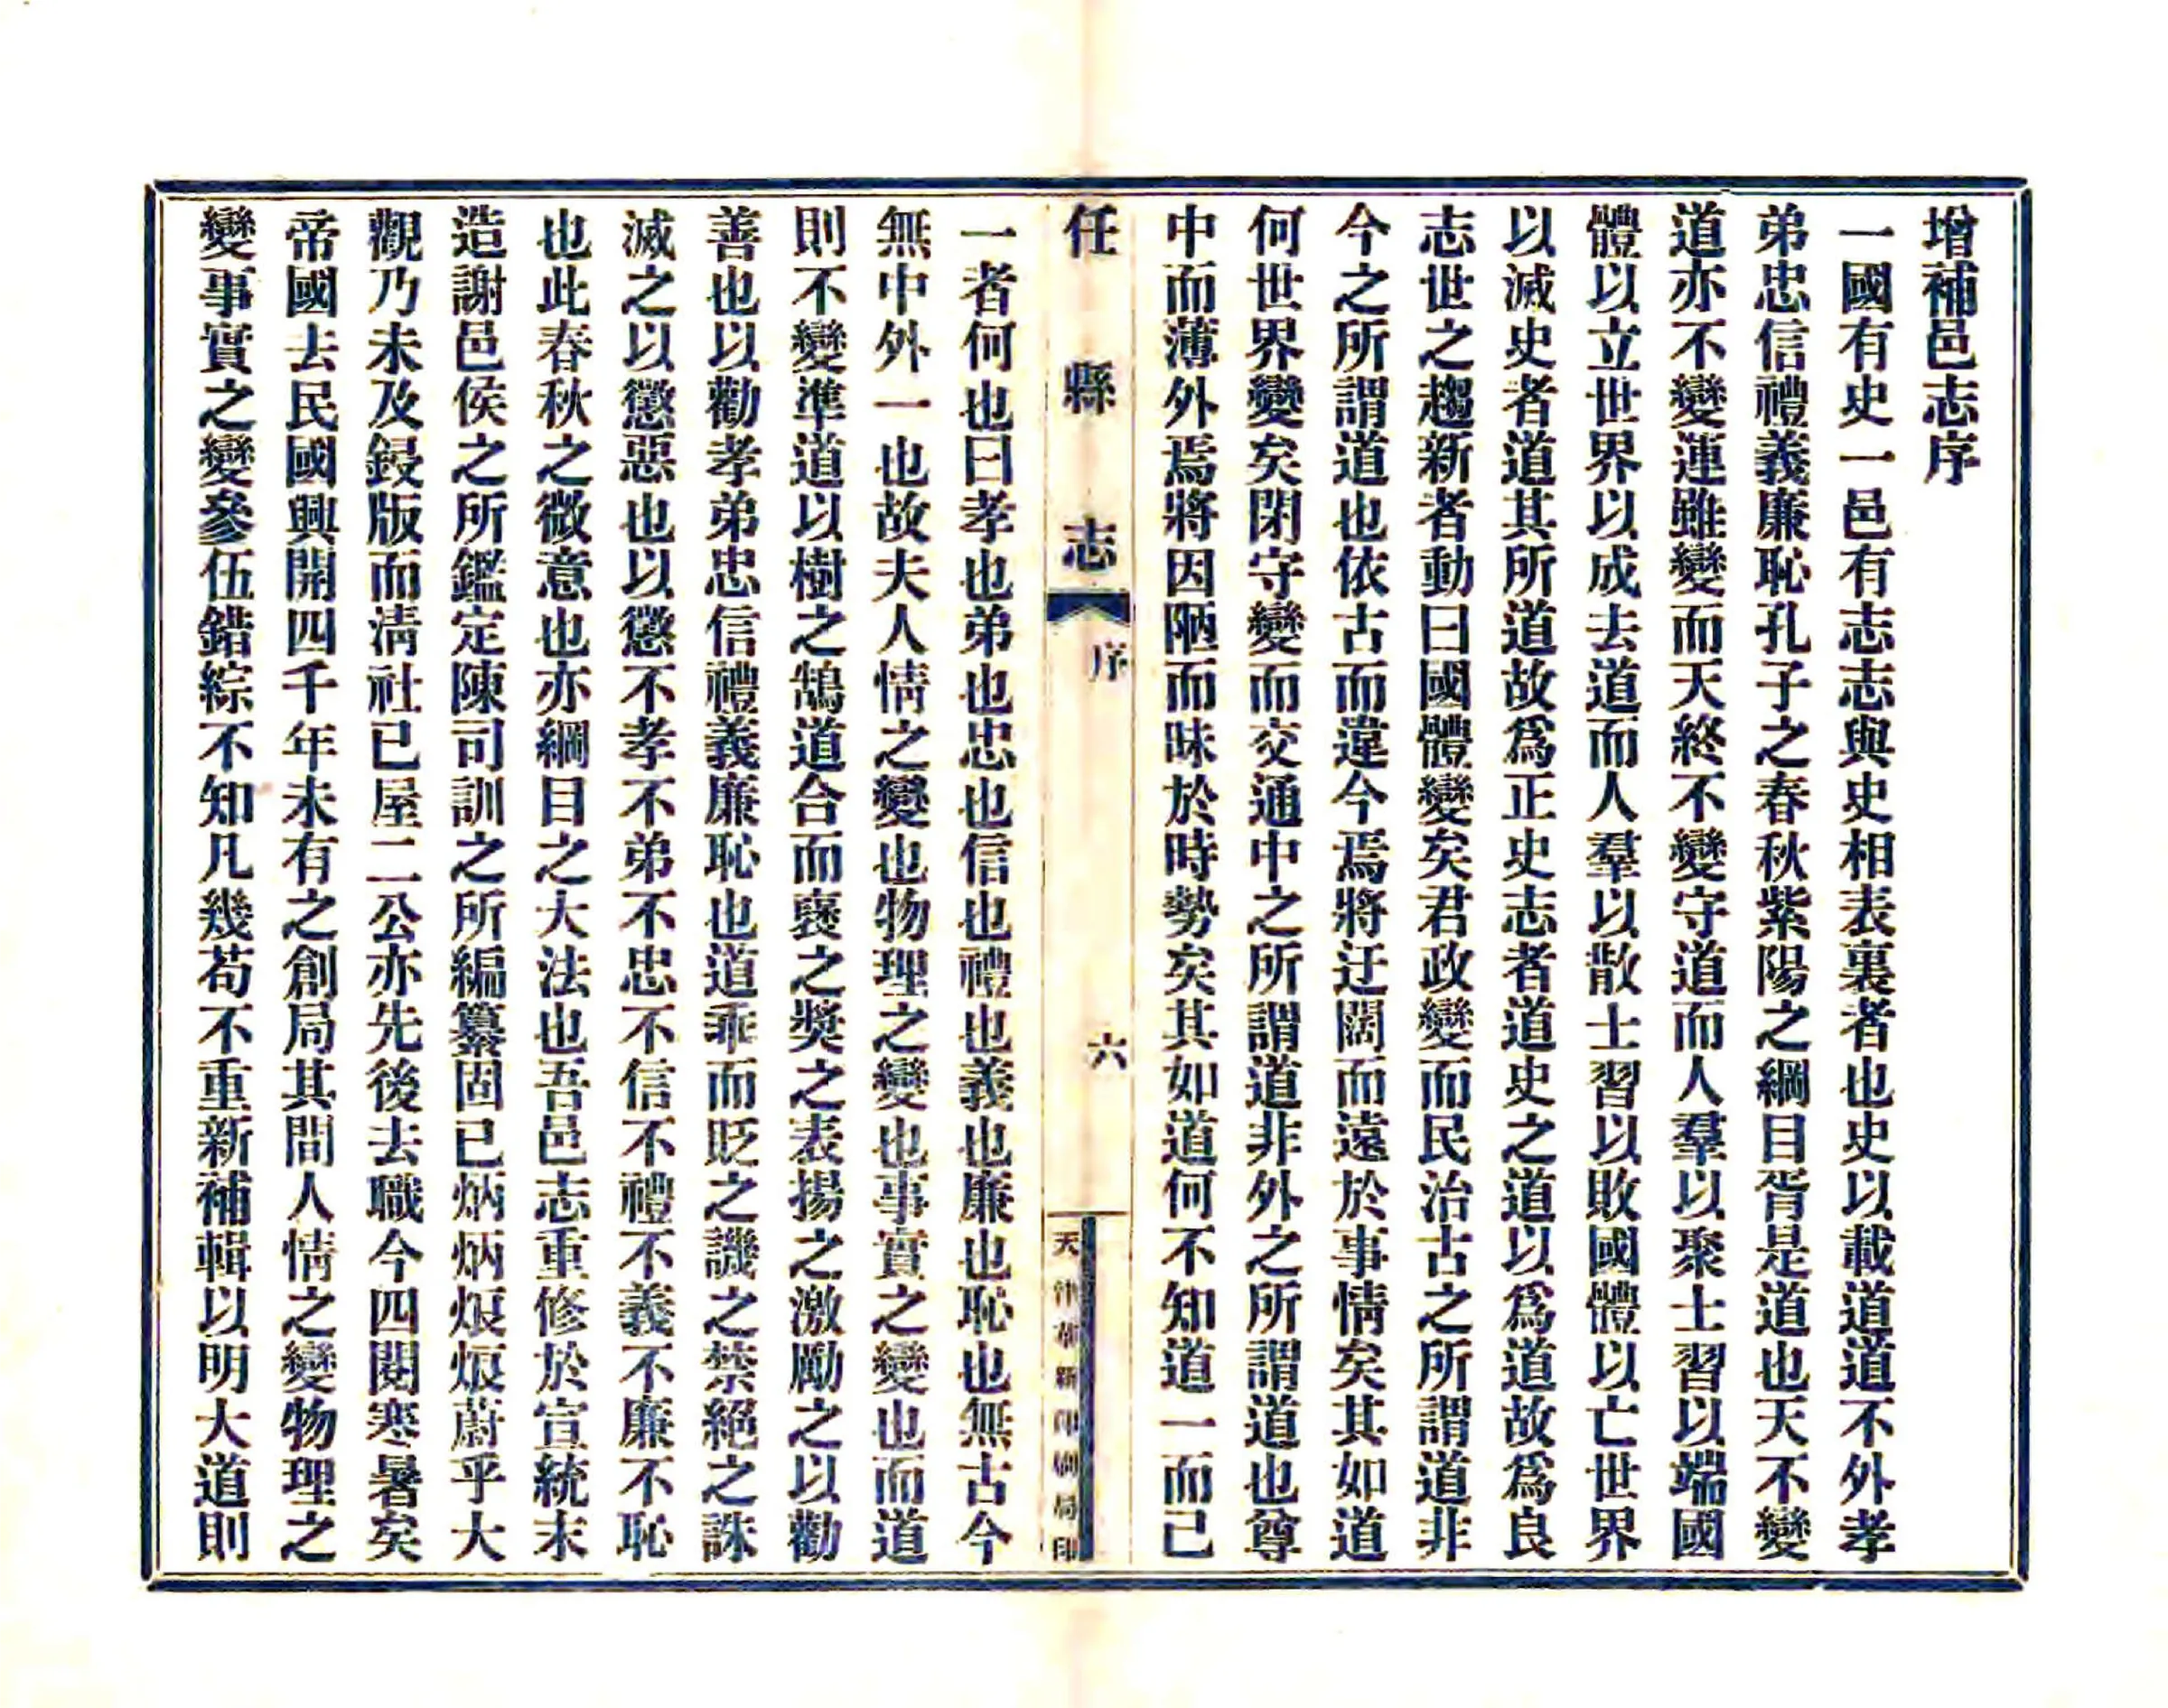 增補邑志序
一國有史一邑有志志與史相表裏者也史以載道道不外孝
弟忠信禮義廉恥孔子之春秋紫陽之綱目胥是道也天不變
道亦不變連雖變而天終不變守道而人羣以聚士習以端國
體以立世界以成去道而人羣以散士習以敗國體以亡世界
以滅史者道其所道故爲正史志者道史之道以爲道故爲良
志世之趨新者動曰國體變矣君政變而民治古之所謂道非
今之所謂道也依古而違今焉將迂闊而遠於事情矣其如道
何世界變矣閉守變而交通中之所謂道非外之所謂道也尊
中而薄外焉將因陋而昧於時勢矣其如道何不知道一而已
任縣志
序
六
天津華新印刷局印
一者何也曰孝也弟也忠也信也禮也義也廉也恥也無古今
無中外一也故夫人情之變也物理之變也事實之變也而道
則不變準道以樹之鵠道合而襃之獎之表揚之激勵之以勸
善也以勸孝弟忠信禮義廉恥也道乖而貶之譏之禁絕之誅
滅之以懲惡也以懲不孝不弟不忠不信不禮不義不廉不恥
也此春秋之微意也亦綱目之大法也吾邑志重修於宣統末
造謝邑侯之所鑑定陳司訓之所編纂固已炳炳烺烺蔚乎大
觀乃未及鋟版而淸社已屋二公亦先後去職今四閱寒暑矣
帝國去民國興開四千年未有之創局其間人情之變物理之
變事實之變參伍錯綜不知凡幾苟不重新補輯以明大道則